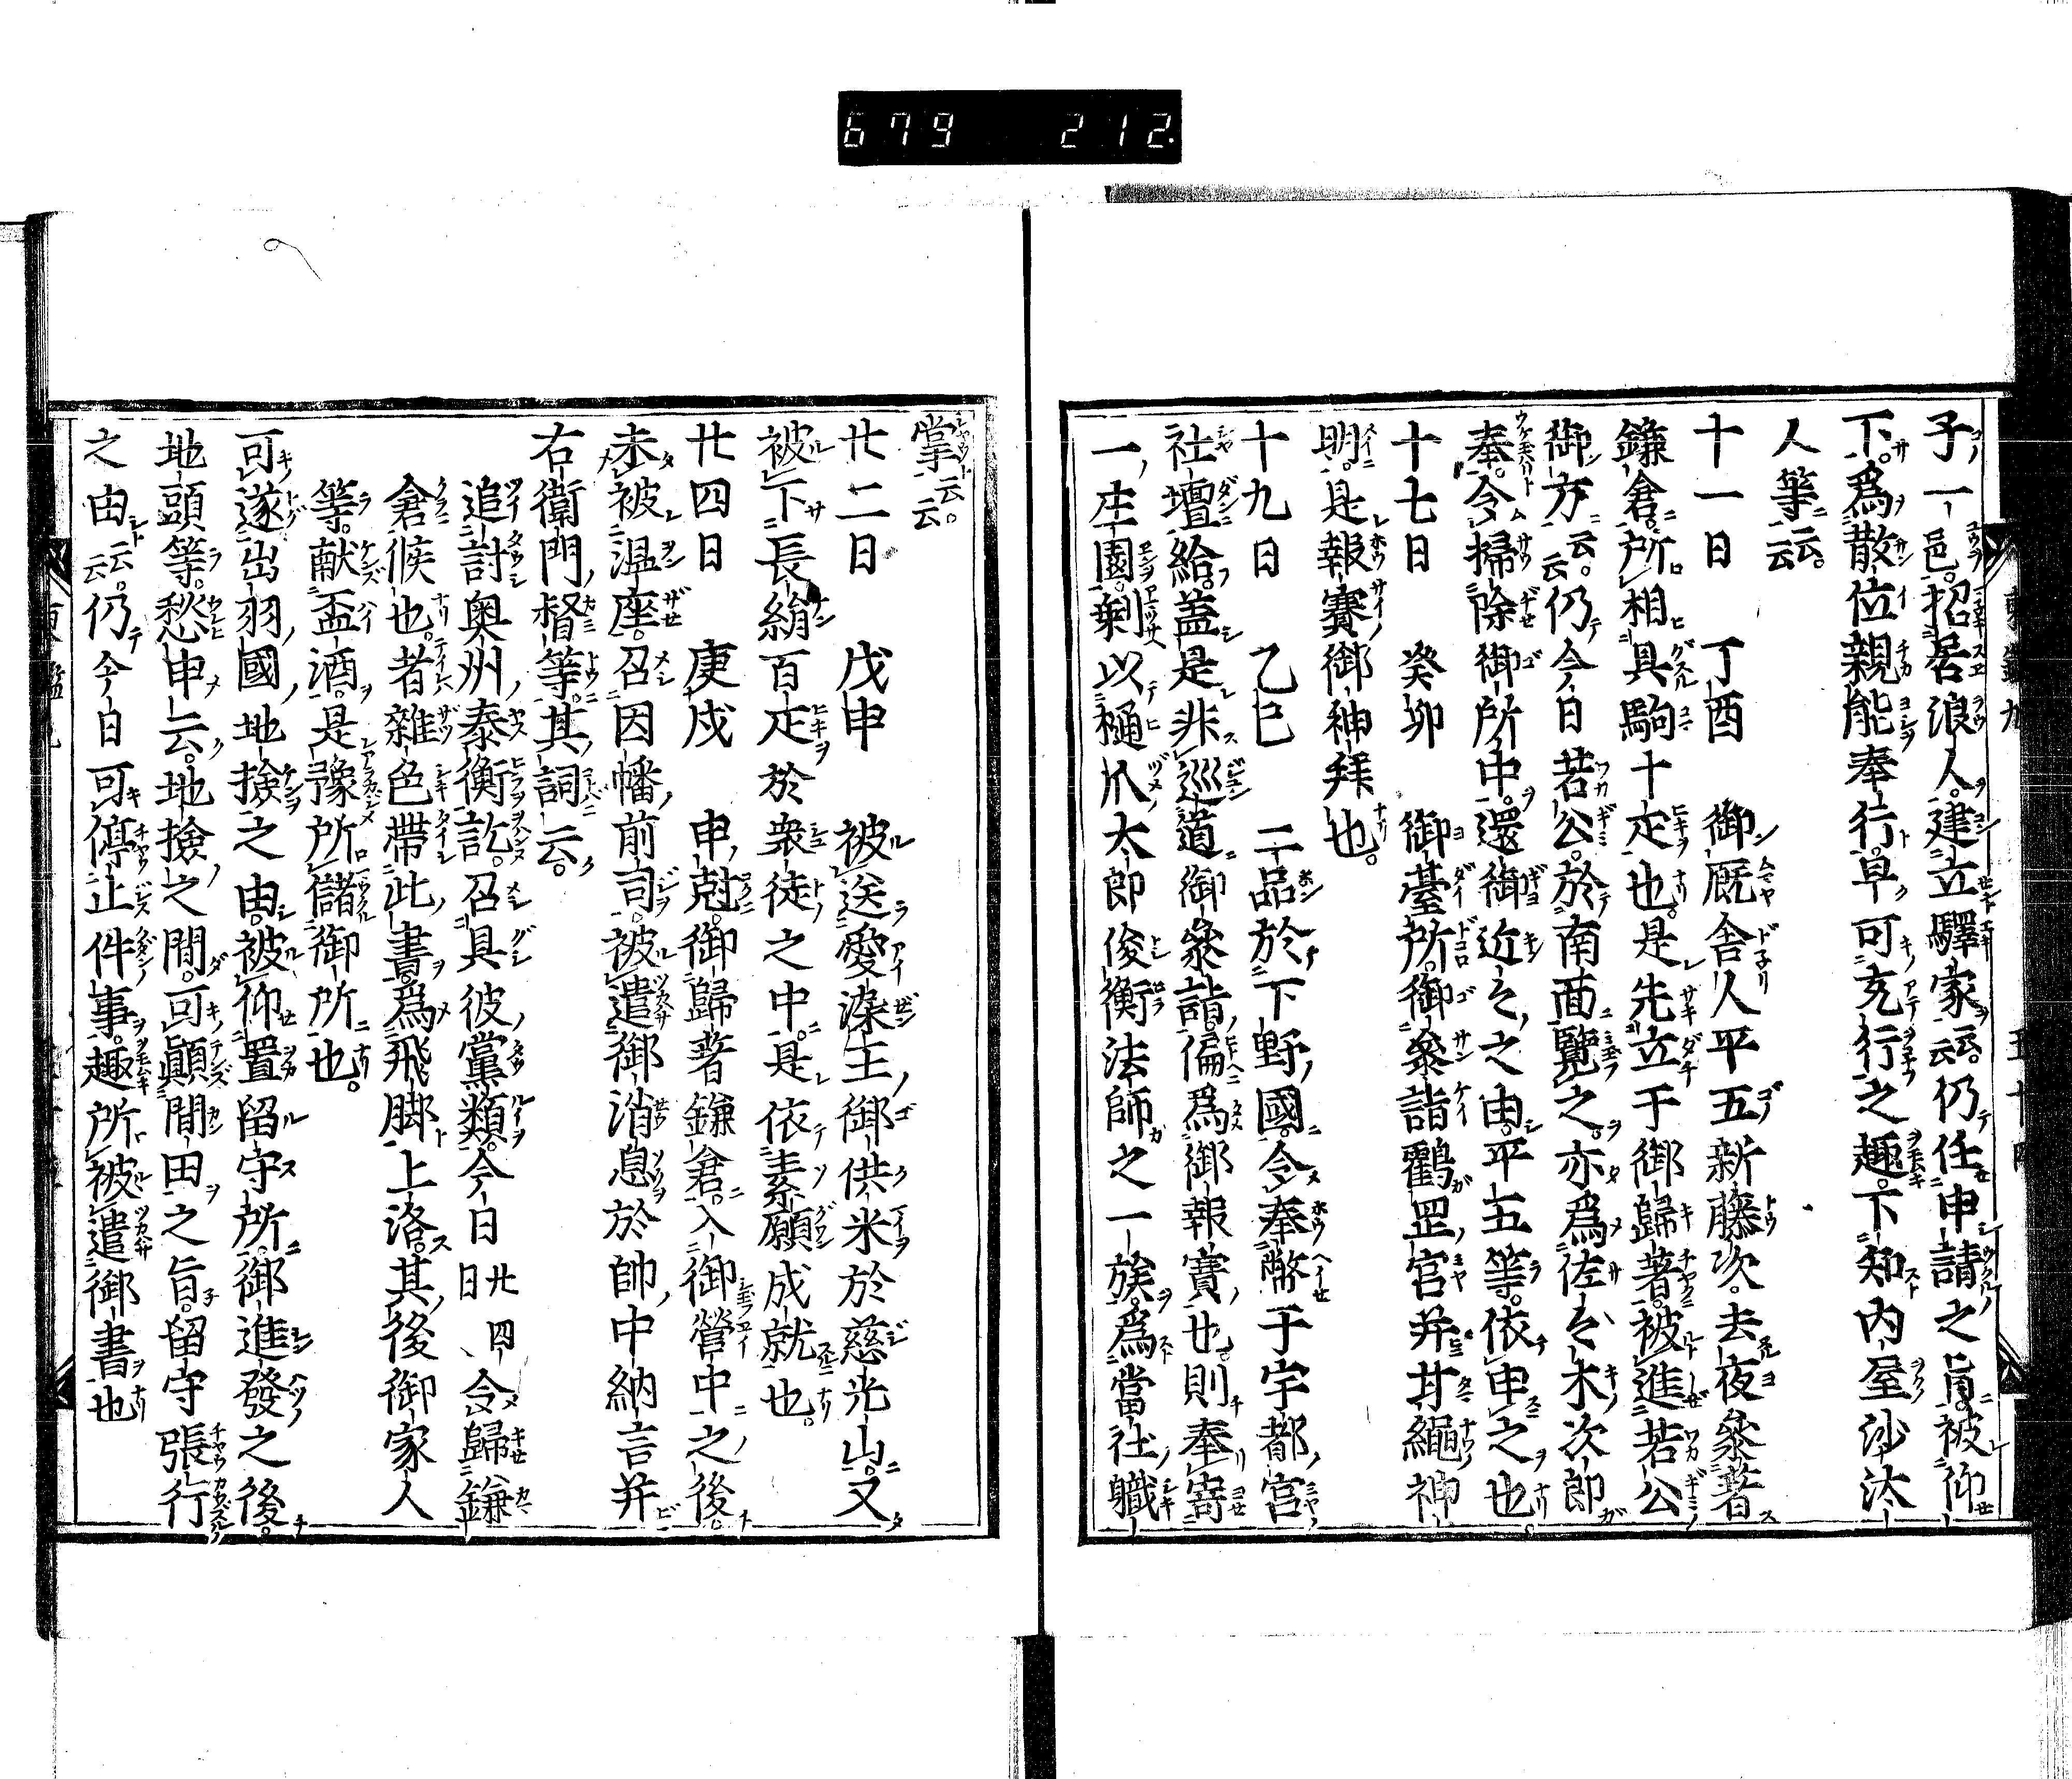 679 212
子一邑。招居浪人。建立驛家云云。仍任申請之旨被仰
下。爲散位親能奉行。早可充行之趣。下知内屋沙汰
人等云云。
十一日 丁酉 御厩舎人平五新藤次。去夜參著
鎌倉。所相具駒十疋也。是先立于御歸著。被進若公
御方云云。仍今日若公。於南面覽之。亦爲佐々木次郎
奉。令掃除御所中。還御近々之由。平五等。依申之也
十七日 癸卯 御臺所。御參詣鶴岡宮并甘繩神
明。是報賽御神拜也。
十九日 乙巳 二品於下野國。令奉幣于宇都宮
社壇給。蓋是非巡道御參詣。偏爲御報賽也。則奉寄
一庄園。剰以樋爪太郎俊衡法師之一族。爲當社職
掌云云。
廿二日 戊申 被送愛染王御供米於慈光山。又
被下長絹百疋於衆徒之中。是依素願成就也。
廿四日 庚戌 申剋。御歸著鎌倉。入御營中之後。
未被温座。召因幡前司。被遣御消息於帥中納言并
右衛門督等。其詞云。
追討奥州泰衡訖。召具彼黨類。今日廿四日令歸鎌
倉候也。者雜色帶此書。爲飛脚上洛。其後御家人
等。献盃酒。是豫所儲御所也。
可遂出羽國地檢之由。被仰置留守所。御進發之後。
地頭等。愁申云。地檢之間。可顚間田之旨。留守張行
之由云云。仍今日可停止件事。趣所被遣御書也